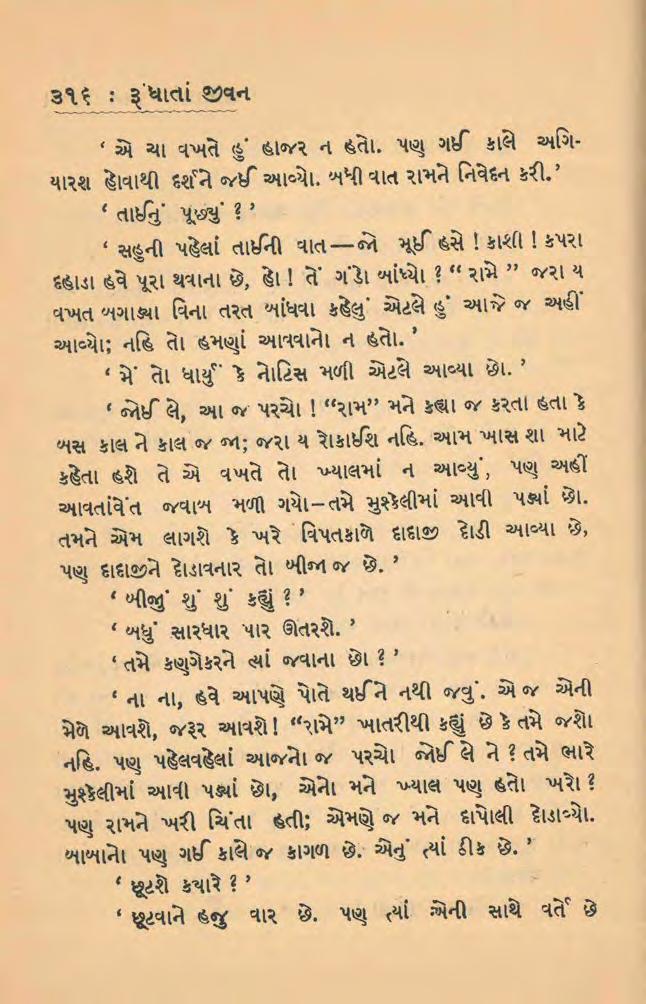 ૩૧૬ : રૂંધાતાં જીવન
‘ એ ચા વખતે હું હાજર ન હતો. પણ ગઈ કાલે અગિ-
યારશ હોવાથી દર્શને જઈ આવ્યો. બધી વાત રામને નિવેદન કરી.’
‘ તાઈનું પૂછ્યું ? ’
‘ સહુની પહેલાં તાઈની વાત—જો મૂઈ હસે ! કાશી ! કપરા
દહાડા હવે પૂરા થવાના છે, હો ! તેં ગંડો બાંધ્યો ? “ રામે ” જરા ય
વખત બગાડ્યા વિના તરત બાંધવા કહેલું એટલે હું આજે જ અહીં
આવ્યો; નહિ તો હમણાં આવવાનો ન હતો. ’
‘ મેં તો ધાર્યું કે નોટિસ મળી એટલે આવ્યા છો. ’
‘ જોઈ લે, આ જ પરચો ! “રામ” મને કહ્યા જ કરતા હતા કે
બસ કાલ ને કાલ જ જા; જરા ય રોકાઈશ નહિ. આમ ખાસ શા માટે
કહેતા હશે તે એ વખતે તો ખ્યાલમાં ન આવ્યું, પણ અહીં
આવતાંવેંત જવાબ મળી ગયો–તમે મુશ્કેલીમાં આવી પડ્યાં છો.
તમને એમ લાગશે કે ખરે વિપતકાળે દાદાજી દોડી આવ્યા છે,
પણ દાદાજીને દોડાવનાર તો બીજા જ છે. ’
‘ બીજું શું શું કહ્યું ? ’
‘ બધું સારધાર પાર ઊતરશે. ’
‘ તમે કણગેકરને ત્યાં જવાના છો ? ’
‘ ના ના, હવે આપણે પોતે થઈને નથી જવું. એ જ એની
મેળે આવશે, જરૂર આવશે! “રામે” ખાતરીથી કહ્યું છે કે તમે જશો
નહિ. પણ પહેલવહેલાં આજનો જ પરચો જોઈ લે ને ? તમે ભારે
મુશ્કેલીમાં આવી પડ્યાં છો, એનો મને ખ્યાલ પણ હતો ખરો ?
પણ રામને ખરી ચિંતા હતી; એમણે જ મને દાપોલી દોડાવ્યો.
બાબાનો પણ ગઈ કાલે જ કાગળ છે. એનું ત્યાં ઠીક છે. ’
‘ છૂટશે કયારે ? ’
‘ છૂટવાને હજુ વાર છે. પણ ત્યાં એની સાથે વર્તે છે